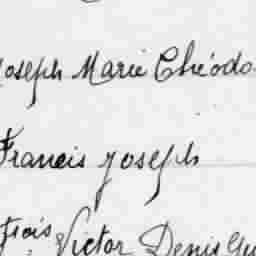 Joseph Marie Théodo
Francis Joseph
çois Victor Denis Gu